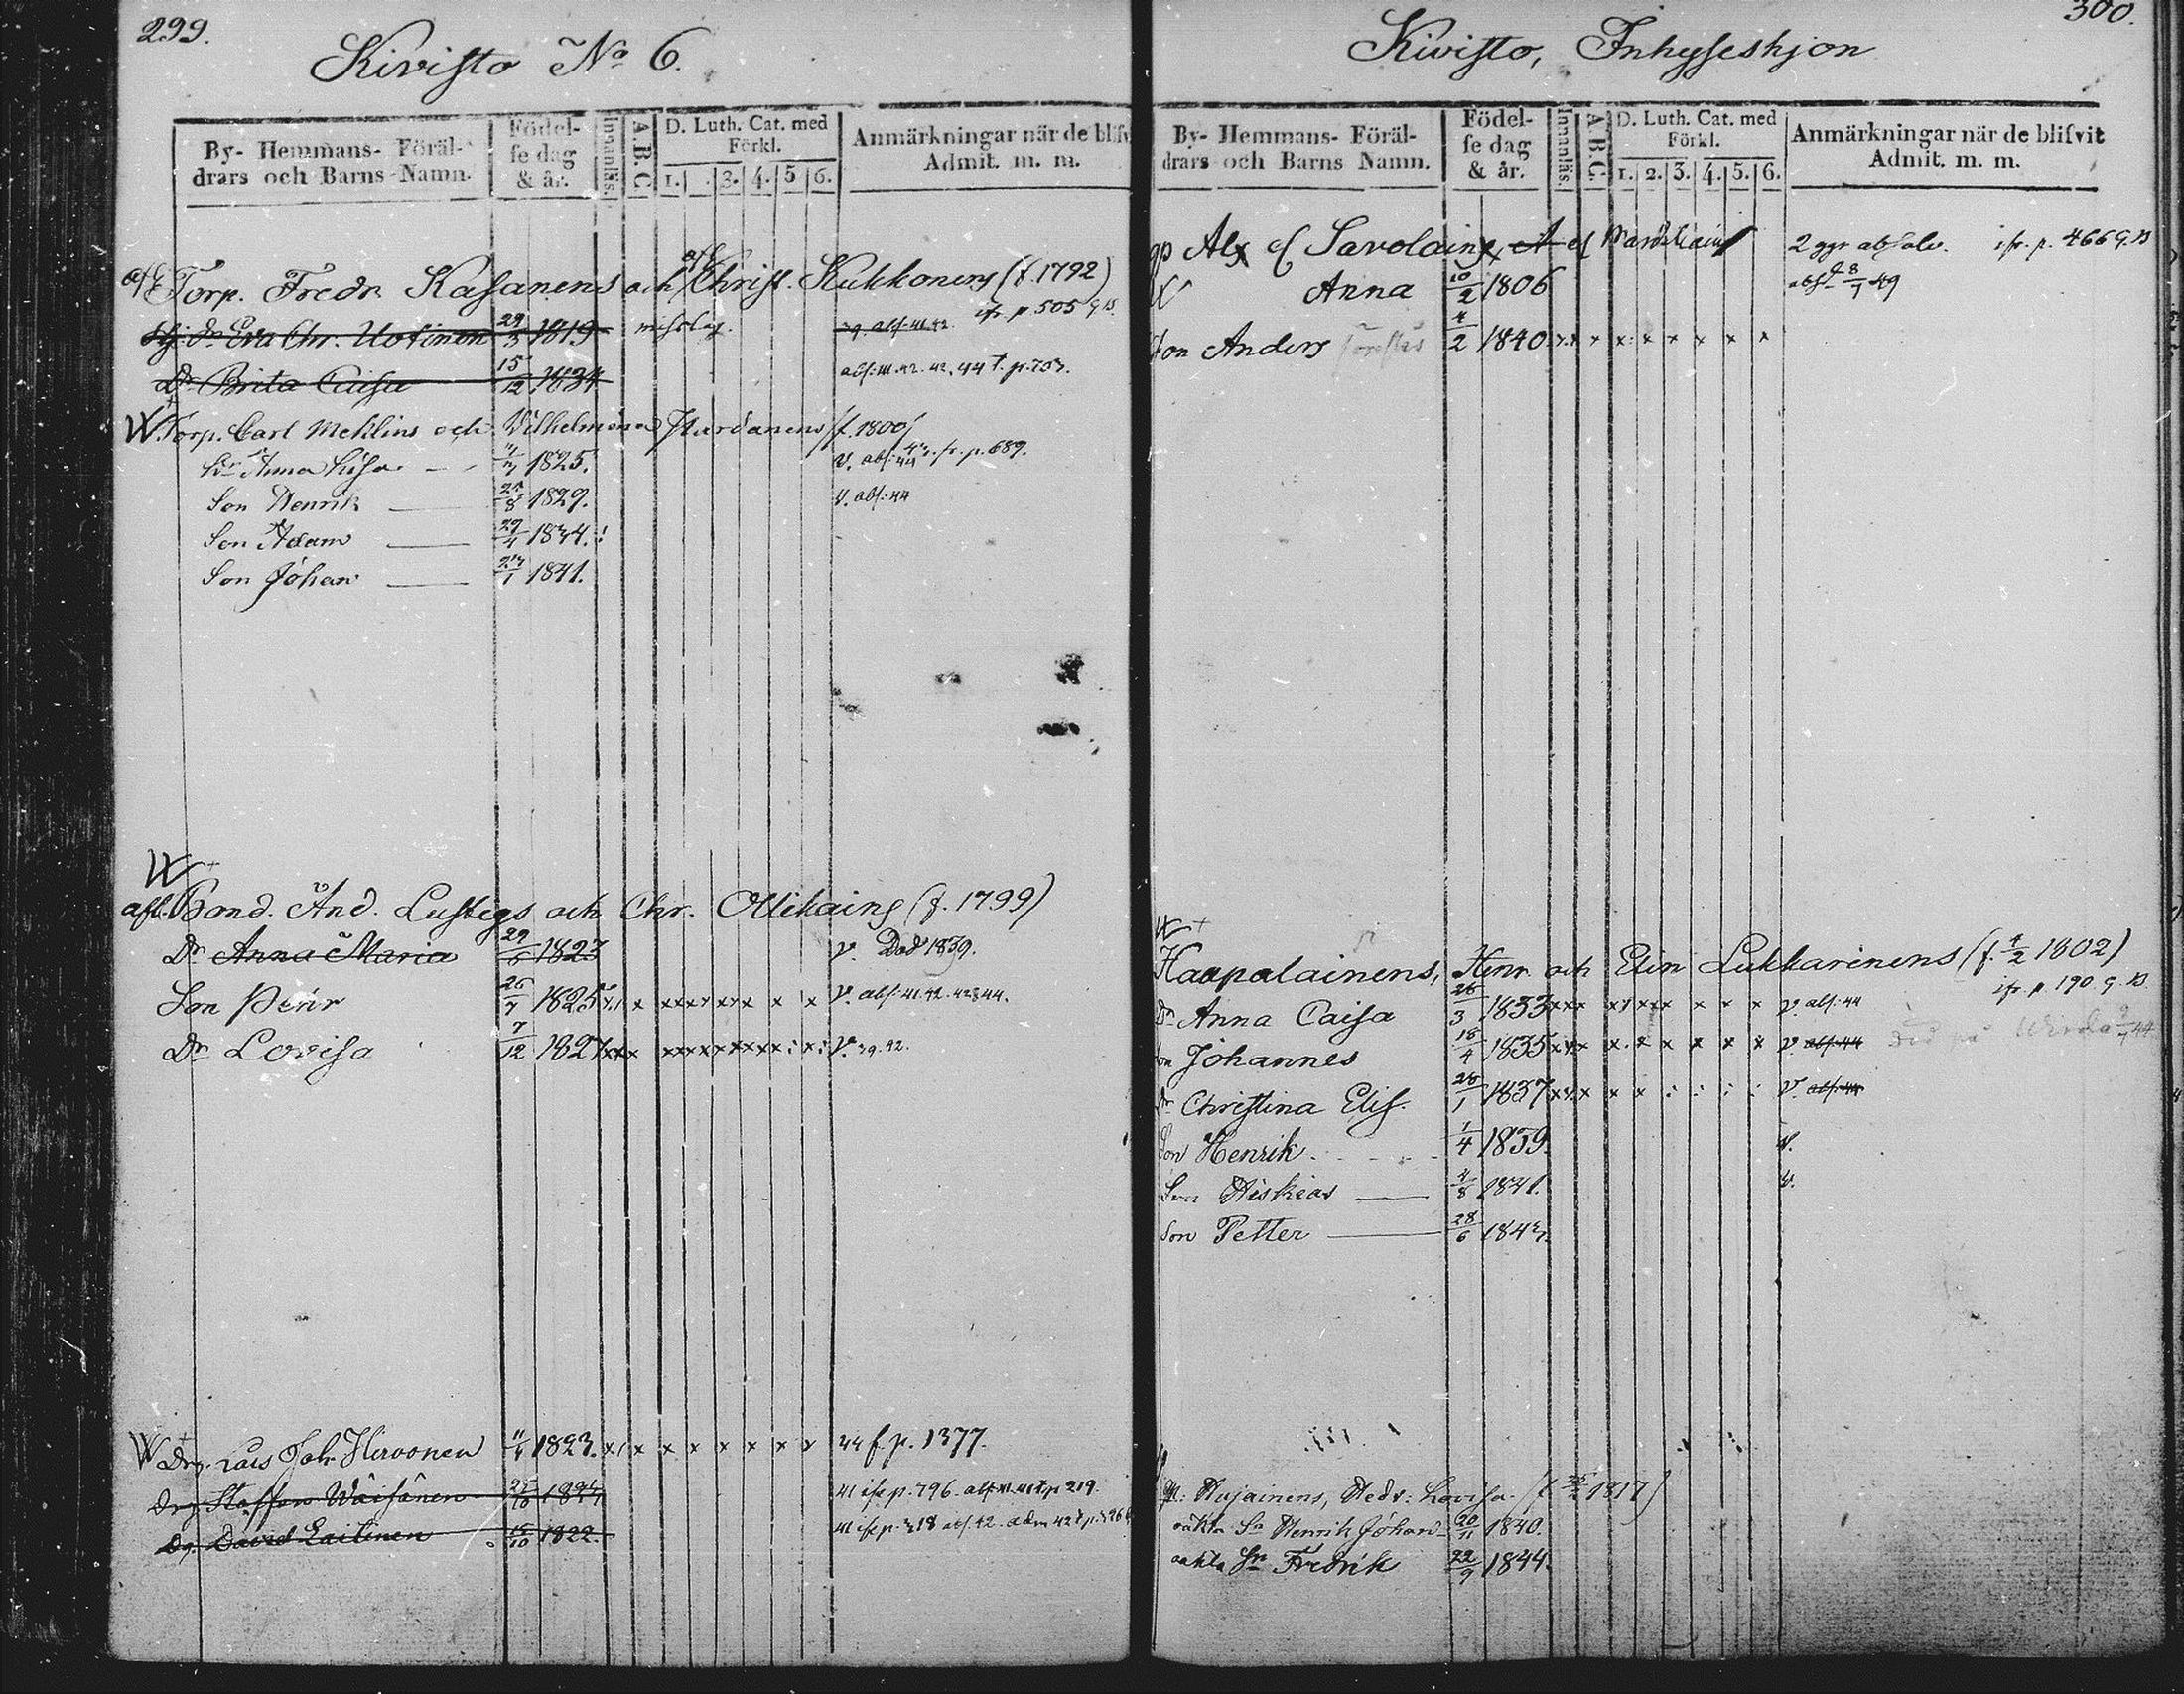 299.
Kivisto No 6.
By- Hemmans- Föräl-
drars och Barns Namn.
Födel-
se dag
& år.
Innanläs.
A.B.C.
D. Luth. Cat. med
Förkl.
1. 3. 4. 5 6.
Anmärkningar när de blifv
Admit. m. m.
Torp. Fredr. Kasanens och Christ. Kukkonens (f. 1792)
ifr. p 505 g.B.
Dr Eva Chr. Uotinen 29/3 1819
Dr Brita Caisa 15/12 1834
W. Torp. Carl Mehlins och Vilhelmina f. 1800
Dr Anna Lisa 1825. V. abs: 44 fr. p. 689.
Son Henrik 1829. V. abs: 44
Son Adam 29/4 1834.
Son Johan 1841.
W
afl. Bond. And. Lustigs och Chr. Ollikains (f. 1799)
Dr Anna Maria 1823 v. Död 1839.
Son Henr 26/7 1825 x x x x x x x x x V. abs. 41. 42. 43 44.
Dr Lovisa 7/12 1827 x x x x x x x x x x x V. 39. 42.
W Drg. Lars Joh. Hirvonen 1823. x x x x x x x 44 f. p. 1377.
Drg Staffan Wäisänen 1824 41 ifr p. 796. p 219.
Dg. David Laitinen 1822. 41 ifr p. 318 abs. 42. adm 42
300.
Kivisto, Inhysehjon
By- Hemmans- Föräl-
drars och Barns Namn.
Födel-
se dag
& år.
Innanläs.
A.B.C.
D. Luth. Cat. med
Förkl.
1. 2. 3. 4. 5. 6.
Anmärkningar när de blifvit
Admit. m. m.
Savolain 2 ggr absolv. ifr. p. 466 g. B
Anna 10/2 1806 49
Son Anders 4/2 1840 x x x x x x x x
W
Haapalainens, Henr och Elin Lukkarinens (f. 4/2 1802)
ifr. p. 190 g. B.
Dr Anna Caisa 26/3 1833 x x x x x x x x x x x v. abs: 44
Son Johannes 18/4 1835 x x x x x x x x v. abs. 44
Dr Christina Elis. 26/1 1837 x x x x x V. abs. 44
Son Henrik 1/4 1839. v.
Son Hiskias 4/8 1841. v.
Son Petter 28/6 1843.
Hujainens, Hedv: Lovisa 1817
oäkta Sn Henrik Johan 20/11 1840.
oäkta Sn Fredrik 22/9 1844.